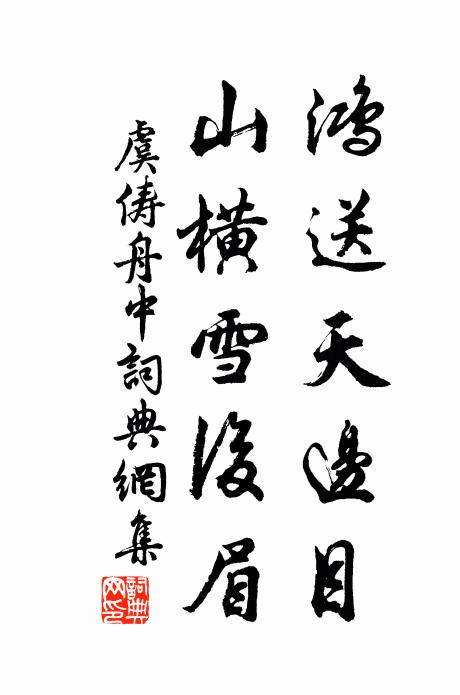 鴻送天邊目
山橫雪後眉
虞儔舟中詞典網集
詞典網印